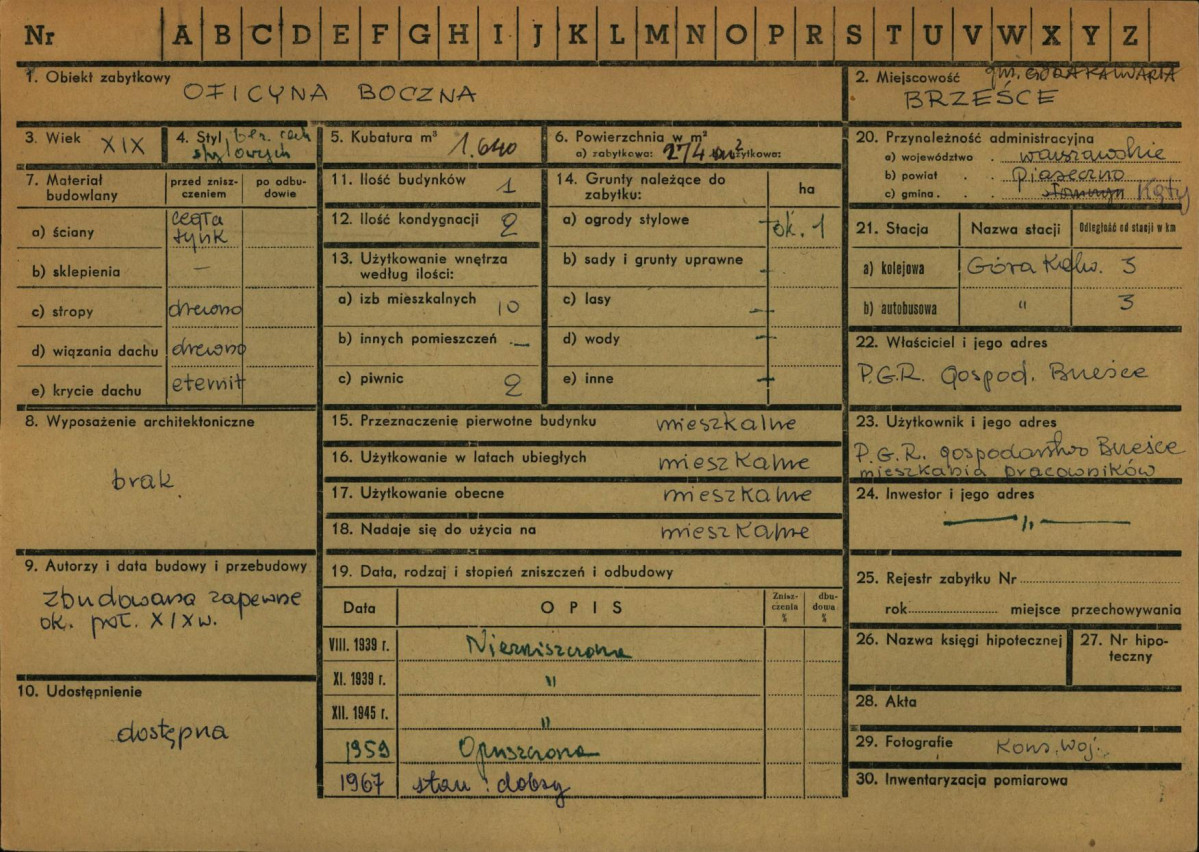 Nr A B C D E F G H I J K L M N O P R S T U V W X Y Z
1. Obiekt zabytkowy OFICYNA BOCZNA
2. Miejscowość gm. GÓRA KALWARIA
BRZEŚCE
3. Wiek XIX
4. Styl bez cech
stylowych
5. Kubatura m³ 1.640
6. Powierzchnia w m²
a) zabytkowa: 274 m² użytkowa:
7. Materiał budowlany
przed zniszczeniem
po odbudowie
a) ściany cegła
tynk
b) sklepienia —
c) stropy drewno
d) wiązania dachu drewno
e) krycie dachu eternit
8. Wyposażenie architektoniczne
brak
9. Autorzy i data budowy i przebudowy
zbudowana zapewne
ok. poł. XIX w.
10. Udostępnienie
dostępna
11. Ilość budynków 1
12. Ilość kondygnacji 2
13. Użytkowanie wnętrza
według ilości:
a) izb mieszkalnych 10
b) innych pomieszczeń —
c) piwnic 2
14. Grunty należące do
zabytku:
ha
a) ogrody stylowe ok. 1
b) sady i grunty uprawne -
c) lasy —
d) wody —
e) inne —
15. Przeznaczenie pierwotne budynku mieszkalne
16. Użytkowanie w latach ubiegłych mieszkalne
17. Użytkowanie obecne mieszkalne
18. Nadaje się do użycia na mieszkalne
19. Data, rodzaj i stopień zniszczeń i odbudowy
Data OPIS Zniszczenia % dbudowa %
VIII. 1939 r. Niezniszczona
XI. 1939 r. "
XII. 1945 r. "
1959 Opuszczona
1967 stan: dobry
20. Przynależność administracyjna
a) województwo . warszawskie
b) powiat . . Piaseczno
c) gmina . . . Kąty
21. Stacja Nazwa stacji Odległość od stacji w km
a) kolejowa Góra Kalw. 3
b) autobusowa " 3
22. Właściciel i jego adres
P.G.R. Gospod. Brześce
23. Użytkownik i jego adres
P.G.R. gospodarstwo Brześce
mieszkania pracowników
24. Inwestor i jego adres
— " —
25. Rejestr zabytku Nr
rok miejsce przechowywania
26. Nazwa księgi hipotecznej
27. Nr hipo-
teczny
28. Akta
29. Fotografie Kons. Woj.
30. Inwentaryzacja pomiarowa